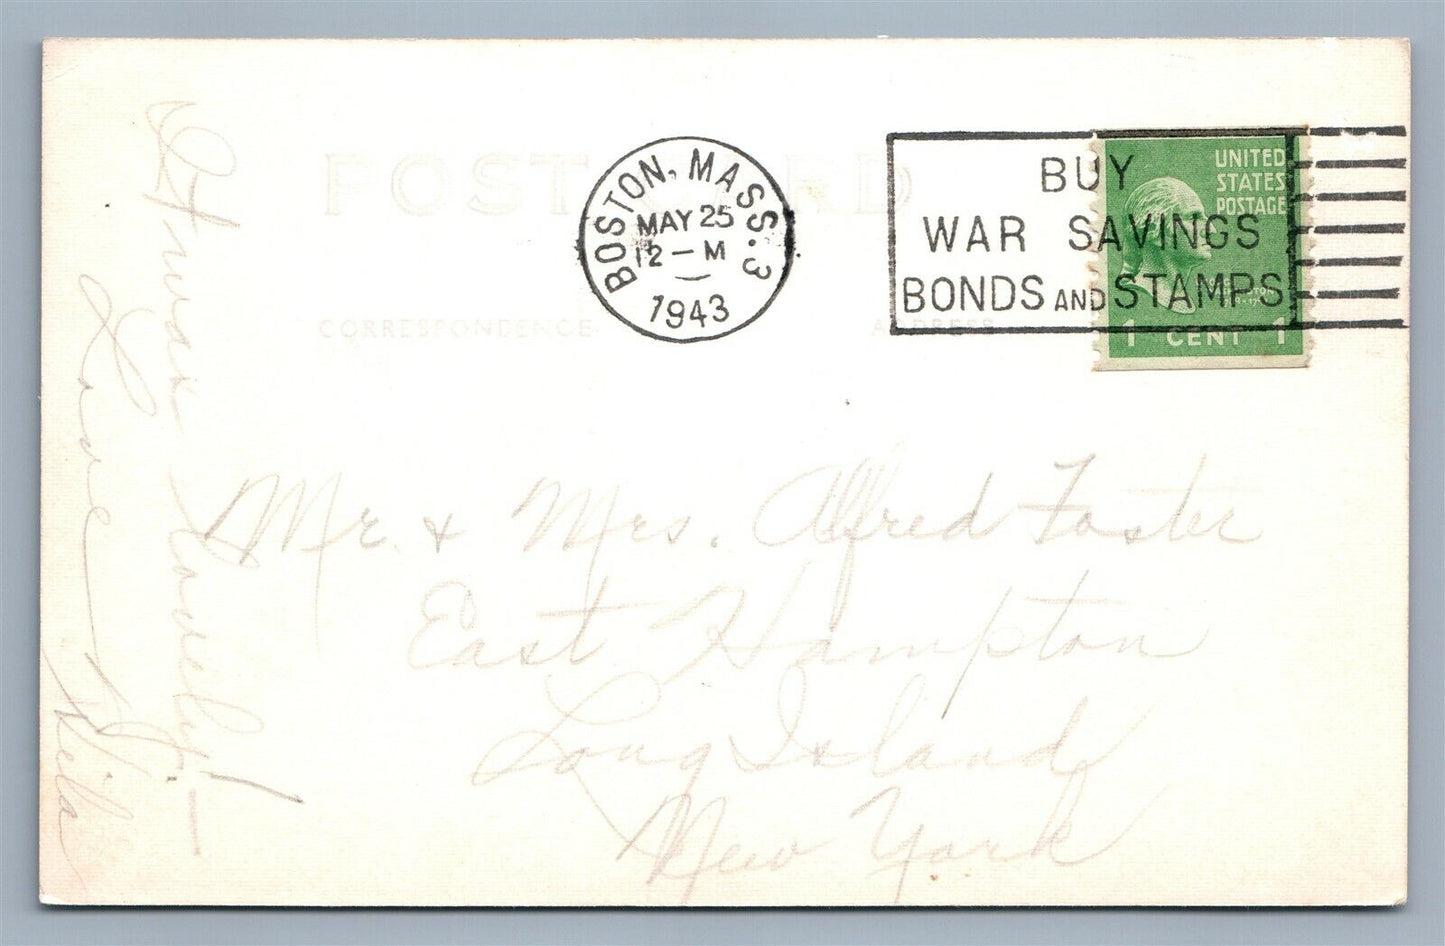 POST CARD
BOSTON, MASS. 3
MAY 25
12 - M
1943
BUY
WAR SAVINGS
BONDS AND STAMPS
UNITED
STATES
POSTAGE
1 CENT 1
CORRESPONDENCE
ADDRESS
It was lovely! -
Love
Mr. & Mrs. Alfred Foster
East Hampton
Long Island
New York